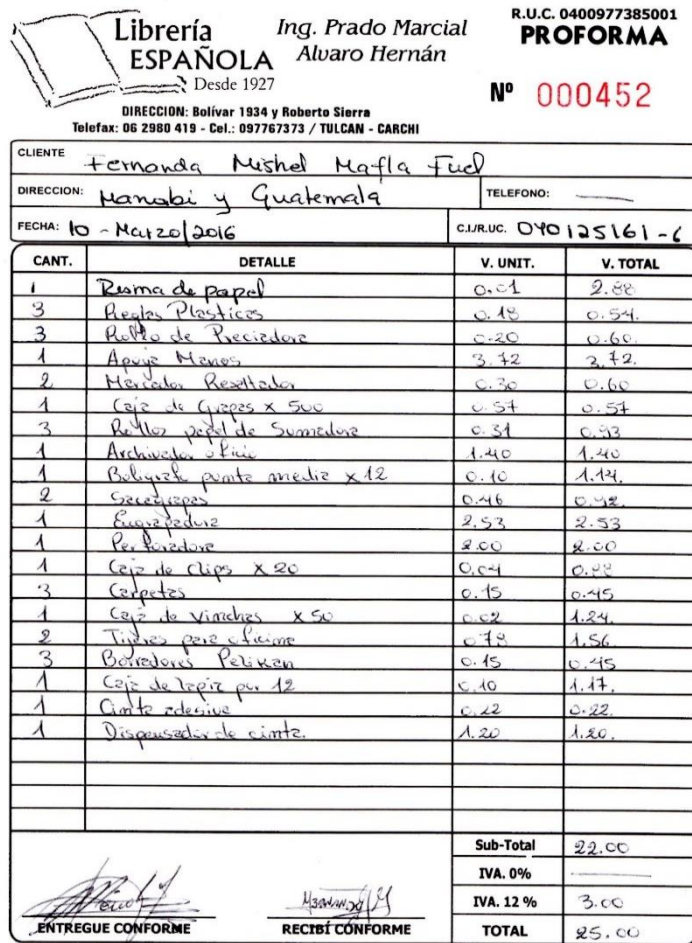 Librería
ESPAÑOLA
Desde 1927
Ing. Prado Marcial
Alvaro Hernán
R.U.C. 0400977385001
PROFORMA
Nº 000452
DIRECCION: Bolívar 1934 y Roberto Sierra
Telefax: 06 2980 419 - Cel.: 097767373 / TULCAN - CARCHI
CLIENTE Fernanda Mishel Mafla Fuel
DIRECCION: Manabi y Guatemala TELEFONO:
FECHA: 10 - Marzo/2016 C.I./R.UC. 040125161-6
CANT. DETALLE V. UNIT. V. TOTAL
1 Resma de papel 0.01 2.88
3 Reglas Plasticas 0.18 0.54.
3 Rollo de 0.20 0.60.
1 Apoya Manos 3.72 3.72.
2 Marcador Resaltador 0.30 0.60
1 Caja de Grapas x 500 0.57 0.57
3 Rollos papel de Sumadora 0.31 0.93
1 Archivador oficio 1.40 1.40
1 Boligrafo punta media x 12 0.10 1.14.
2 Sacagrapas 0.46 0.92.
1 Engrapadora 2.53 2.53
1 Perforadora 2.00 2.00
1 Caja de clips x 20 0.04
3 Carpetas 0.15 0.45
1 Caja de Vinchas x 50 0.02 1.24.
2 para oficina 0.78 1.56
3 Borradores Pelikan 0.15 0.45
1 Caja de lapiz por 12 0.10 1.17.
1 Cinta adesiva 0.22 0.22.
1 Dispensador de cinta. 1.20 1.20.
Sub-Total 22.00
IVA. 0%
IVA. 12 % 3.00
TOTAL 25.00
ENTREGUE CONFORME RECIBÍ CONFORME